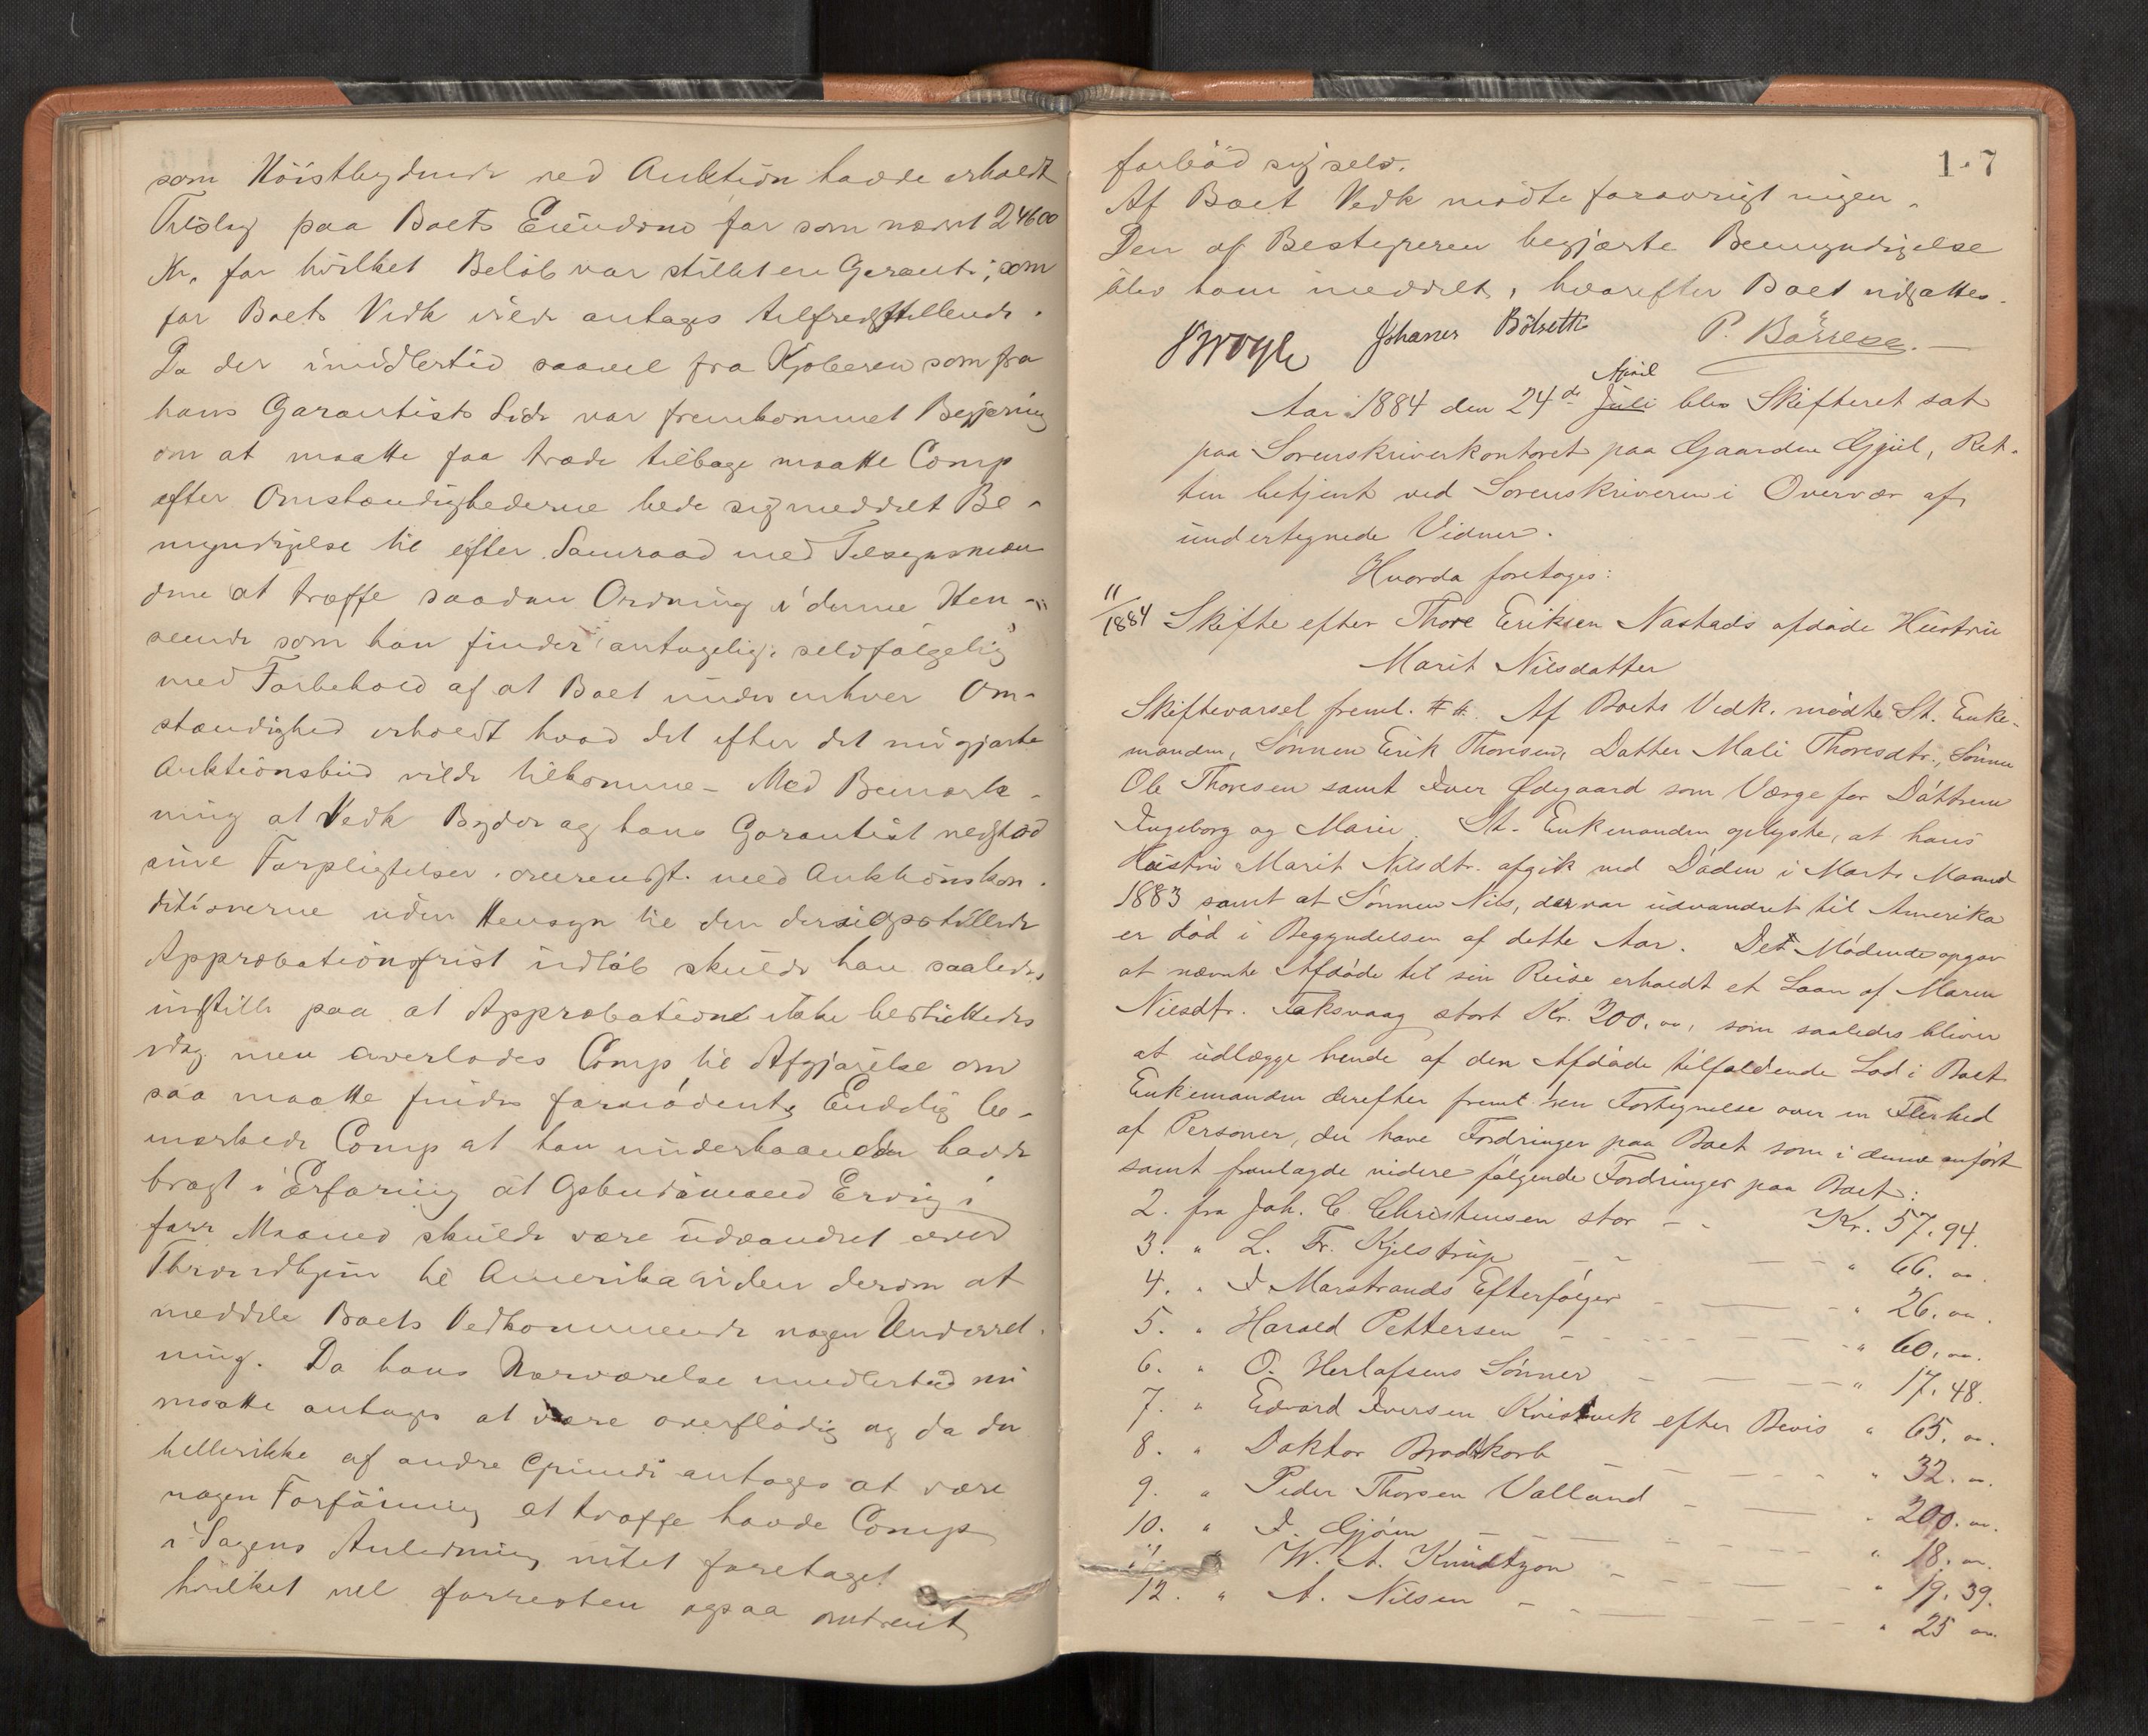 som Höistbydende ved Auktion havde erholdt
Tilslag paa Boets Eiendom for som nævnt 24600
Kr, for hvilket Beløb var stillet en Garanti, som
for Boets Vedk vilde antages tilfredsstillende.
Da der imidlertid saavel fra Kjøberen som fra
hans Garantists Side var fremkommet Begjæring
om at maatte faa træde tilbage maatte Comp
efter Omstændighederne bede sig meddelt Be-
myndigelse til efter Samraad med Tilsynsmæn
dene at træffe saadan Ordning i denne Hen-
seende som han finder antagelig, selvfølgelig
med Forbehold af at Boet under enhver Om-
stændighed erholdt hvad det efter det nu gjorte
Auktionsbud vilde tilkomme - Med Bemærk-
ning at Vedk Byder og hans Garantist vedstod
sine Forpligtelser overensst. med Auktionskon-
ditionerne uden Hensyn til den deri opstillede
Approbationsfrist udløb skulde han saaledes
indstille paa at Approbation ikke besluttedes
idag men overlodes Comp til Afgjørelse om
saa maatte findes fornødent. Endelig be-
mærkede Comp at han underhaanden havde
bragt i Erfaring at Opbudsmand Ervig i
forr Maaned skulde være udvandret over
Throndhjem til Amerika uden derom at
meddele Boets Vedkommende nogen Underret-
ning. Da hans Nærværelse imidlertid nu
maatte antages at være overflødig og da der
hellerikke af andre Grunde antages at være
nogen Forføining at træffe havde Comp
i Sagens Anledning intet foretaget
hvilket vel forresten ogsaa omtrent
1 7
forbød sig selv.
Af Boet Vedk mødte forøvrigt ingen.
Den af Bestyreren begjærte Bemyndigelse
blev ham meddelt, hvorefter Boet udsattes.
Johannes P.
April
Aar 1884 den 24de Juli blev Skifteret sat
paa Sorenskriverkontoret paa Gaarden Gjul, Ret-
ten betjent ved Sorenskriveren i Overvær af
undertegnede Vidner.
Hvorda foretoges:
11/1884 Skifte efter Thore Eriksen Nastads afdøde Hustru
Marit Nilsdatter
Skiftevarsel freml. ## Af Boets Vedk. mødte St. Enke-
manden, Sønnen Erik Thoresen, Datter Mali Thoresdtr., Sønnen
Ole Thoresen samt Iver Ødegaard som Værge for Døttrene
Ingeborg og Marie. St. Enkemanden oplyste, at hans
Hustru Marit Nilsdtr. afgik ved Døden i Marts Maaned
1883 samt at Sønnen Nils, der var udvandret til Amerika
er død i Begyndelsen af dette Aar. De Mødende opgav
at nævnte Afdøde til sin Reise erholdt et Laan af Maren
Nilsdtr. Taksvaag stort Kr. 200.00, som saaledes bliver
at udlægge hende af den Afdøde tilfaldende Lod i Boet
Enkemanden derefter freml. en Fortegnelse over en Flerhed
af Personer, der have Fordringer paa Boet som i denne anført
samt fremlagde videre følgende Fordringer paa Boet:
2. fra Joh. C. Christensen stor - - Kr. 57,94.
3. " L. Fr. Kjelstrup - - " 66. oo.
4. " I Marstrands Efterfølger - - " 26. oo.
5. " Harald Pettersen - - " 60, oo.
6. " O. Herlofsens Sønner - - " 17, 48.
7. " Edvard Iversen Kristvik efter Bevis " 65, oo.
8. " Doktor Brodtkorb - - " 32. oo.
9. " Peder Thorsen Valland - - " 200. oo.
10. " I. Gjøen - - " 18. oo.
11. " W. A. Knudtzon - - " 19, 39.
12. " A. Nilsen - - " 25 oo.